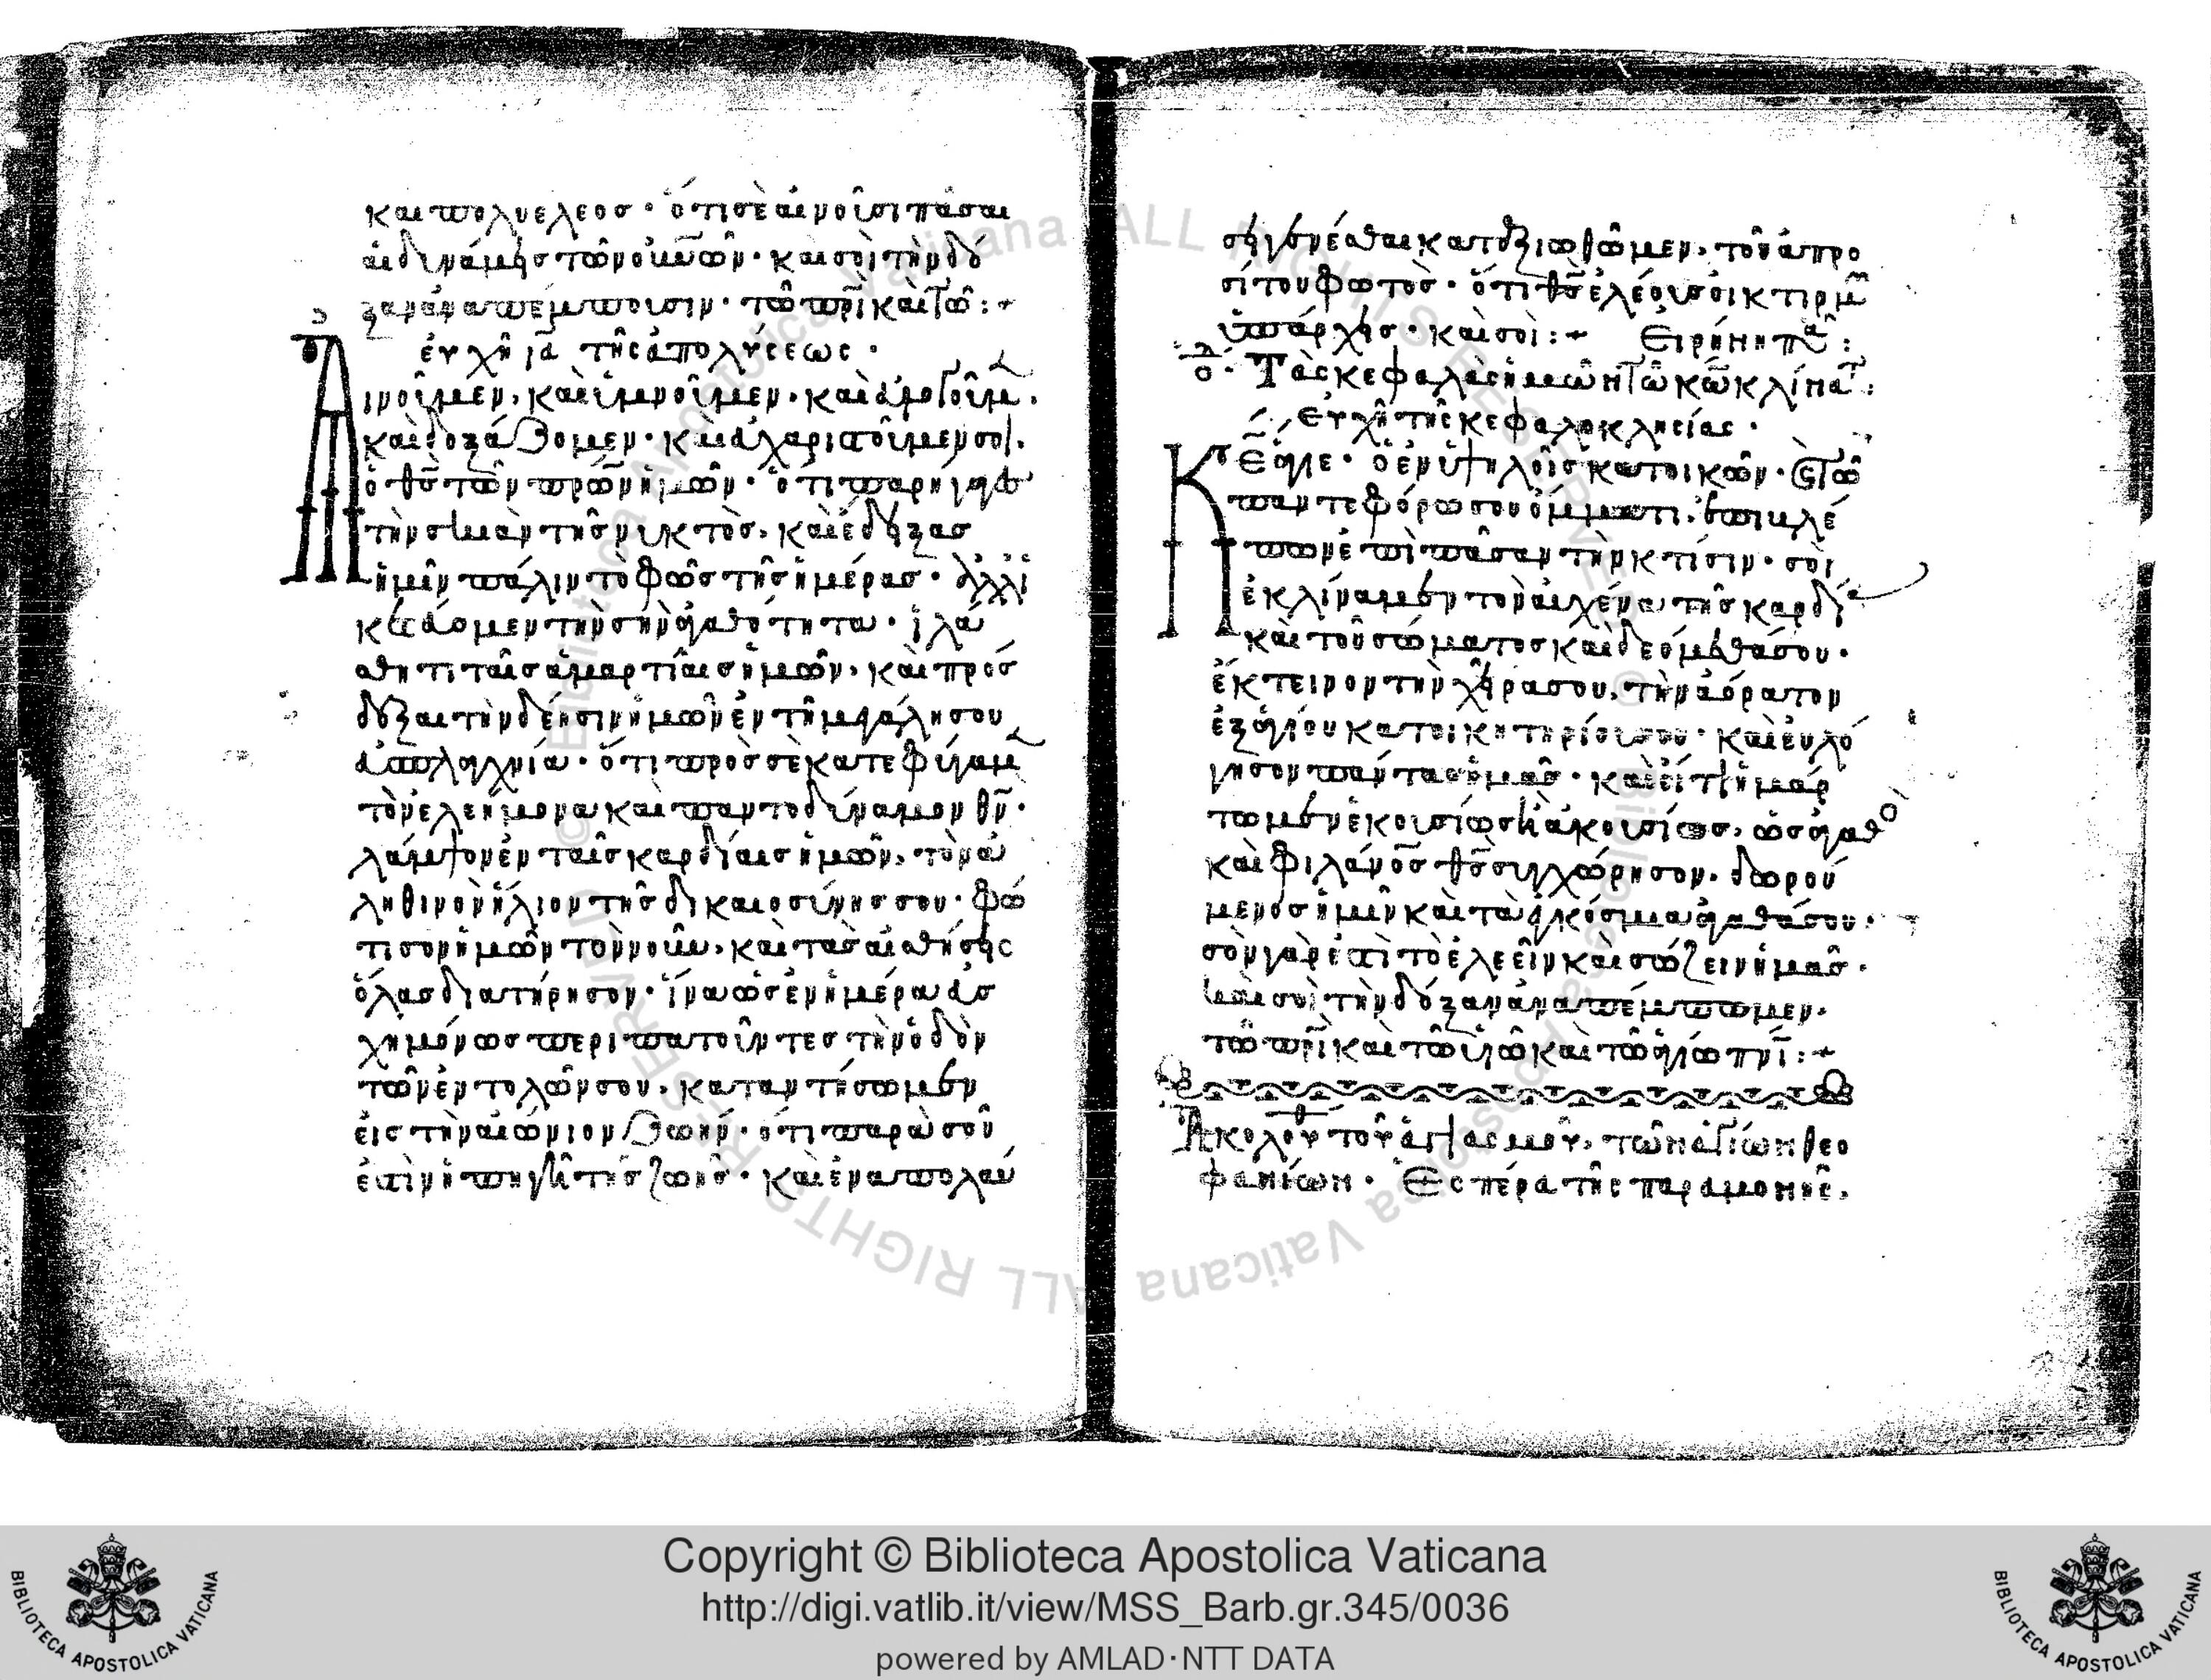 καὶ πολυέλεος · ὅτι σὲ αἰνοῦσι πᾶσαι
αἱ δυνάμεις τῶν οὐνῶν · καὶ σοὶ τὴν δό
ξαν ἀναπέμπουσιν · τῶ πρὶ καὶ τῶ :+
εὐχὴ ια τῆς ἀπολύσεως ·
Αἰνοῦμεν, καὶ ὑμνοῦμεν · καὶ εὐλογοῦμ ·
καὶ δοξάζομεν · καὶ εὐχαριστοῦμεν σοι ·
ὁ θς τῶν πρων ἡμῶν · ὅτι παρήγαγες
τὴν σκιὰν τῆς νυκτὸς, καὶ ἔδειξας
ἡμῖν πάλιν τὸ φῶς τῆς ἡμέρας · ἀλλ ἱ
κετεύομεν τὴν σὴν ἀγαθότητα · ἱλά
σθητι ταῖς ἁμαρτίαις ἡμῶν, καὶ πρόσ
δεξαι τὴν δέησιν ἡμῶν ἐν τῆ μεγάλη σου
εὐσπλαγχνία · ὅτι πρὸς σὲ κατεφύγαμ
τὸν ἐλεήμονα καὶ παντοδύναμον θν ·
λάμψον ἐν ταῖς καρδίαις ἡμῶν, τὸν ἀ
ληθινὸν ἥλιον τῆς δικαιοσύνης σου · φώ
τισον ἡμῶν τὸν νοῦν, καὶ τὰς αἰσθήσεις
ὅλας διατήρησον · ἵνα ὡς ἐν ἡμέρα εὐσ
χημόνως περιπατοῦντες τὴν ὁδὸν
τῶν ἐντολῶν σου, καταντήσωμεν
εἰς τὴν αἰώνιον ζωήν · ὅτι παρὰ σοῦ
ἐστὶν ἡ πηγὴ τῆς ζωῆς · καὶ ἐν ἀπολαύ
σει γενέσθαι καταξιωθῶμεν, τοῦ ἀπρο
σίτου φωτὸς · ὅτι θς ἐλέους οἰκτιρμ
ὑπάρχεις · καὶ σοὶ :+ Εἰρήνη πᾶ :
Τὰς κεφαλὰς ἡμῶν τῶ κω κλίνατ :
Εὐχὴ τῆς κεφαλοκλησίας ·
Κε ἅγιε · ὁ ἐν ὑψηλοῖς κατοικῶν · καὶ τῶ
παντεφόρω σου ὄμματι, ἐπιβλέ
πων ἐπὶ πᾶσαν τὴν κτίσιν · σοὶ
ἐκλίναμεν τὸν αὐχένα τῆς καρδί
καὶ τοῦ σώματος καὶ δεόμεθά σου ·
ἔκτεινον τὴν χεῖρα σου, τὴν ἀόρατον
ἐξ ἁγίου κατοικητηρίου σου · καὶ εὐλό
γησον πάντας ἡμᾶς · καὶ εἴ τι ἡμάρ
τωμεν ἑκουσίως ἢ ἀκουσίως, ὡς ἀγαθὸ
καὶ φιλάνος θς συγχώρησον, δωρού
μενος ἡμῖν καὶ τὰ ἐγκόσμια ἀγαθά σου ·
σὸν γὰρ ἐστὶ τὸ ἐλεεῖν καὶ σώζειν ἡμᾶς ·
καὶ σοὶ τὴν δόξαν ἀναπέμπομεν,
τῶ πρὶ καὶ τῶ υἱῶ καὶ τῶ ἁγίω πνι :+
Ἀκολουθ τοῦ ἁγιασμοῦ, τῶν ἁγίων θεο
φανίων · Ἑσπέρα τῆς παραμονῆς,
Copyright © Biblioteca Apostolica Vaticana
http://digi.vatlib.it/view/MSS_Barb.gr.345/0036
powered by AMLAD·NTT DATA
BIBLIOTECA APOSTOLICA VATICANA
BIBLIOTECA APOSTOLICA VATICANA